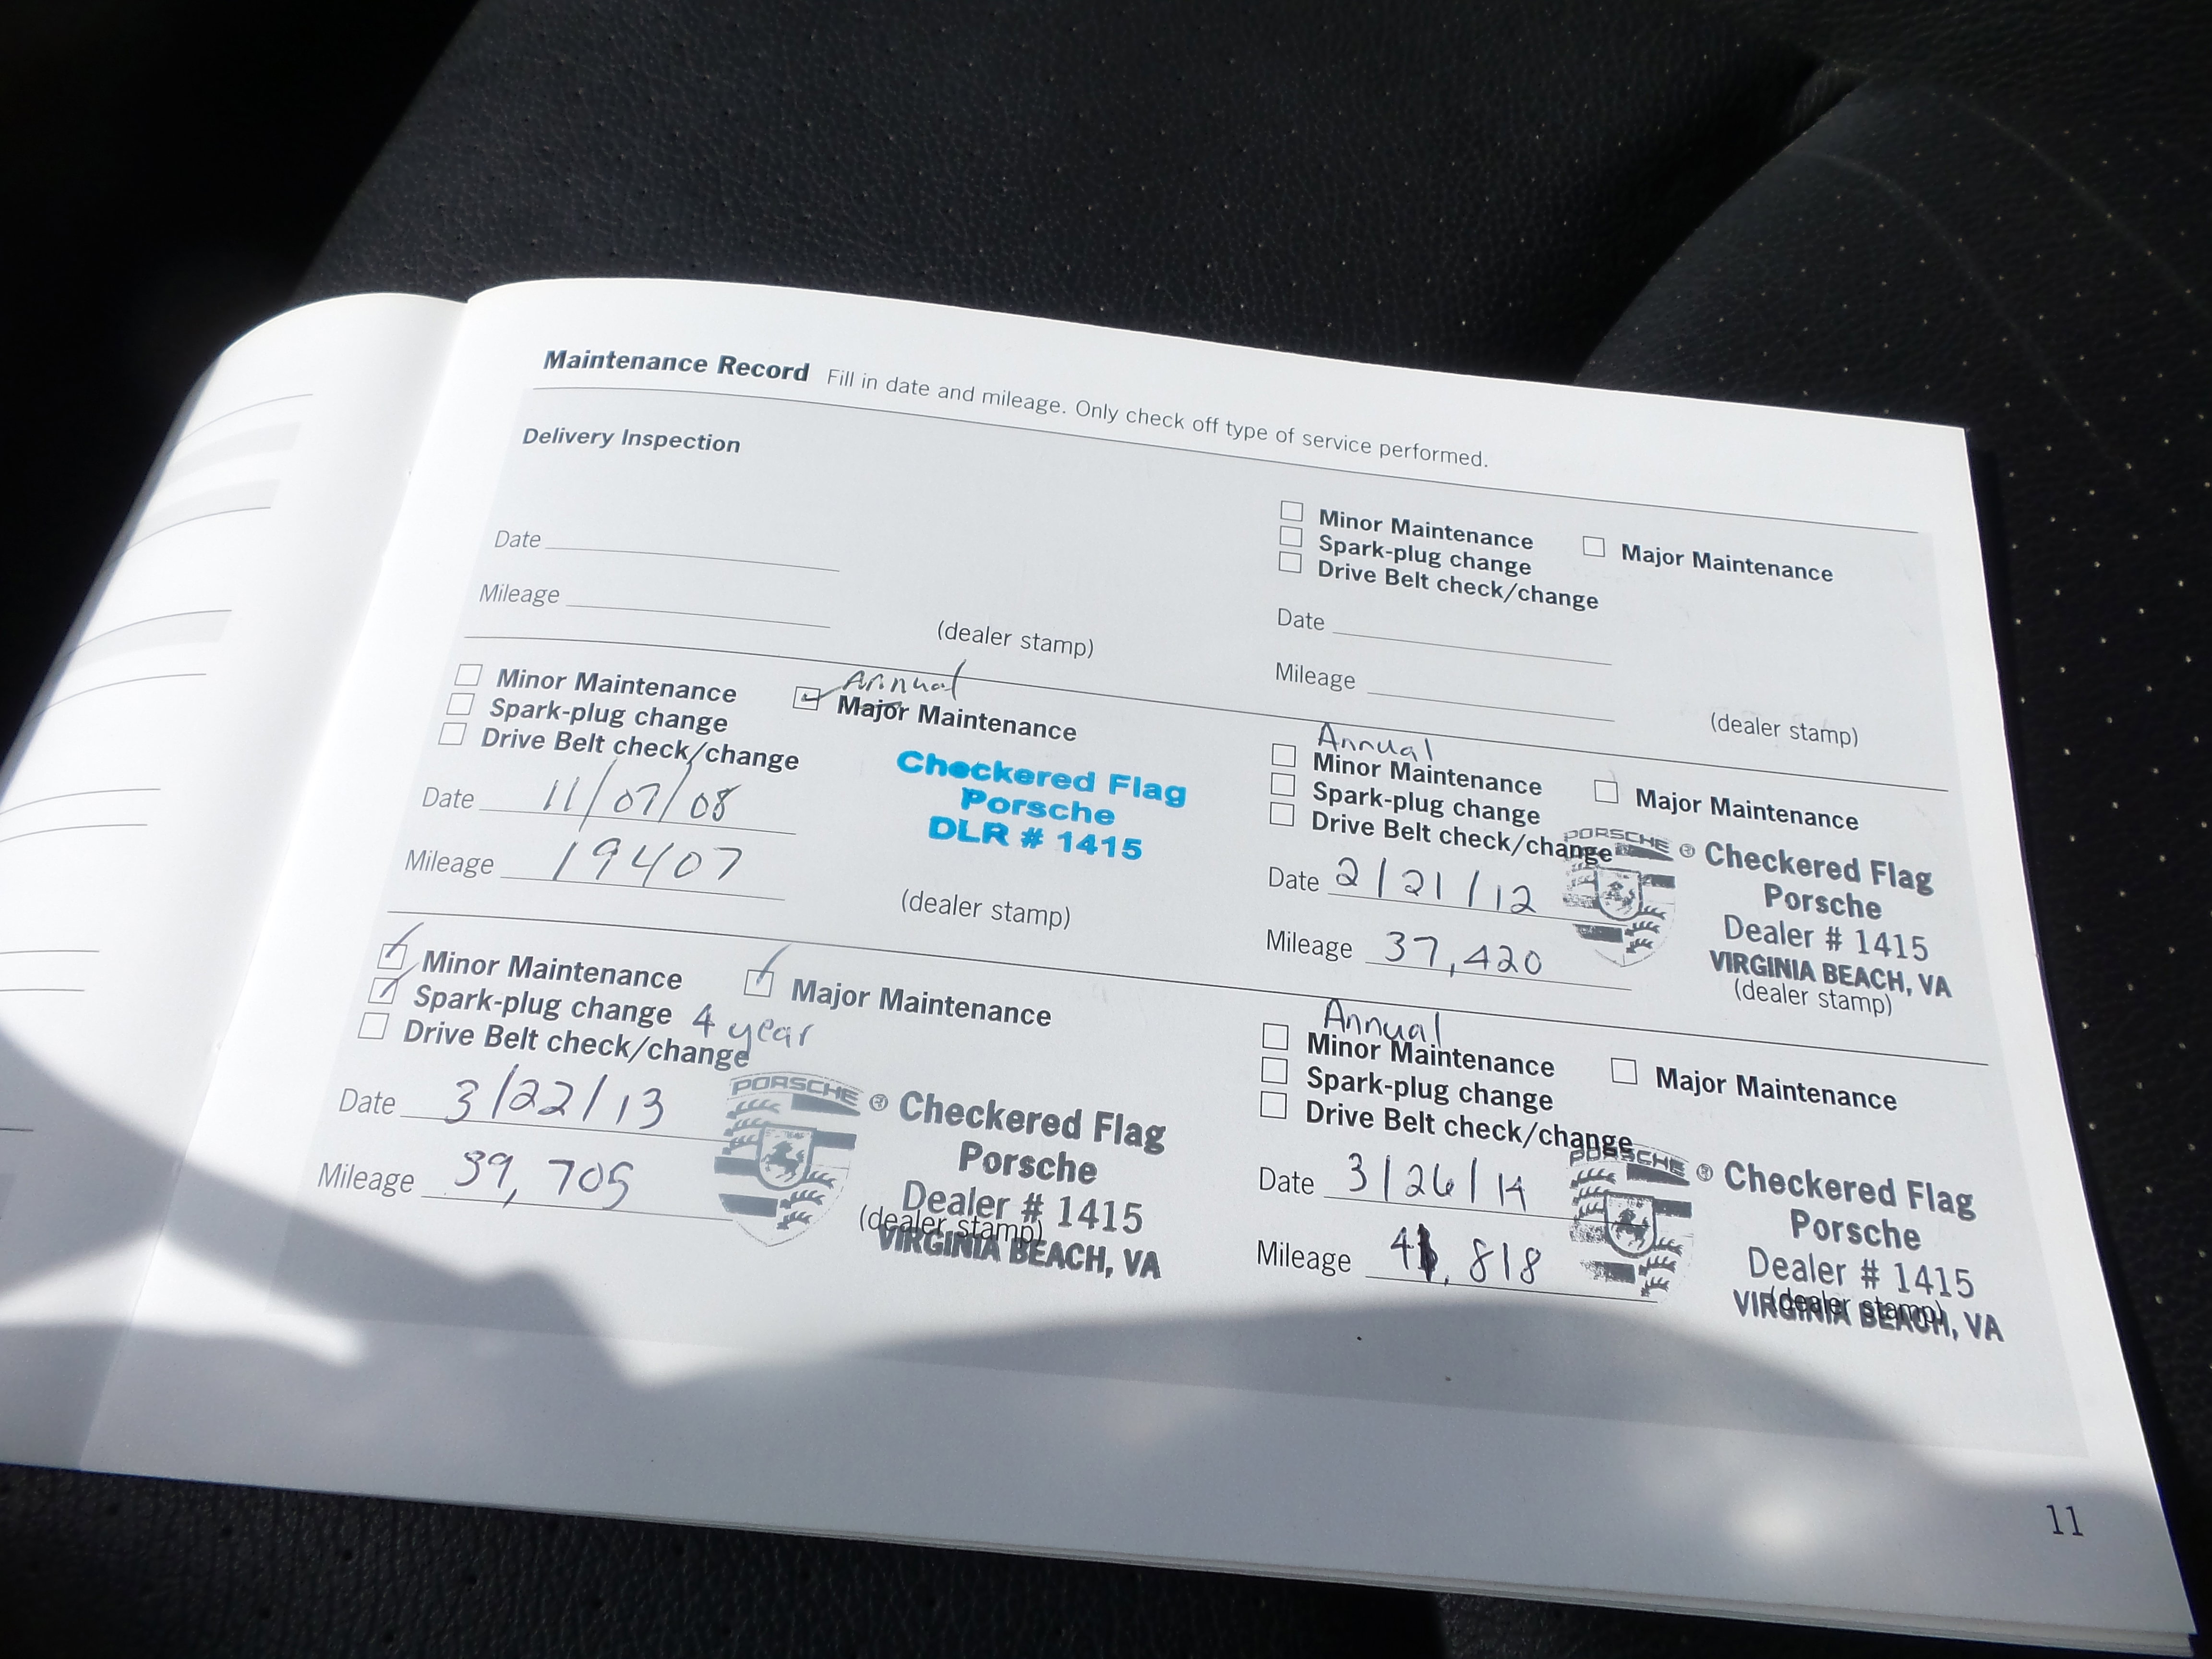 Maintenance Record Fill in date and mileage. Only check off type of service performed.
Delivery Inspection
Date
Mileage
(dealer stamp)
Minor Maintenance
Major Maintenance
Spark-plug change
Drive Belt check/change
Date
Mileage
(dealer stamp)
Annual
Minor Maintenance
Major Maintenance
Spark-plug change
Drive Belt check/change
Date 11/07/08
Mileage 19407
Checkered Flag
Porsche
DLR # 1415
(dealer stamp)
Annual
Minor Maintenance
Major Maintenance
Spark-plug change
Drive Belt check/change
Date 2/21/12
Mileage 37,420
PORSCHE
® Checkered Flag
Porsche
Dealer # 1415
VIRGINIA BEACH, VA
(dealer stamp)
Minor Maintenance
Major Maintenance
Spark-plug change 4 year
Drive Belt check/change
Date 3/22/13
Mileage 39,705
PORSCHE
® Checkered Flag
Porsche
Dealer # 1415
(dealer stamp)
VIRGINIA BEACH, VA
Annual
Minor Maintenance
Major Maintenance
Spark-plug change
Drive Belt check/change
Date 3/26/14
Mileage 41,818
PORSCHE
® Checkered Flag
Porsche
Dealer # 1415
(dealer stamp)
VIRGINIA BEACH, VA
11